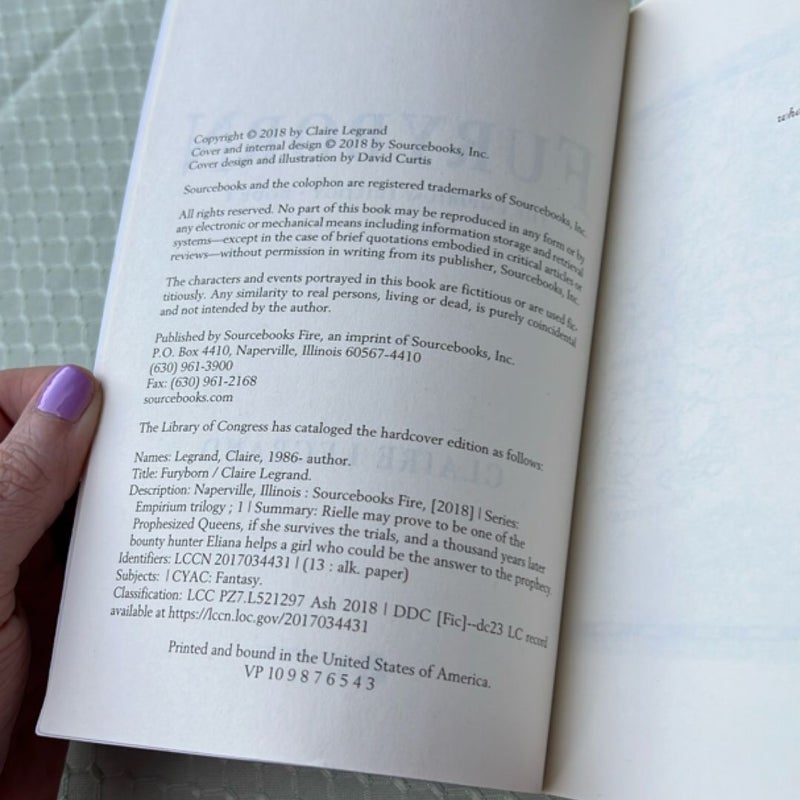 Copyright © 2018 by Claire Legrand
Cover and internal design © 2018 by Sourcebooks, Inc.
Cover design and illustration by David Curtis
Sourcebooks and the colophon are registered trademarks of Sourcebooks, Inc.
All rights reserved. No part of this book may be reproduced in any form or by
any electronic or mechanical means including information storage and retrieval
systems—except in the case of brief quotations embodied in critical articles or
reviews—without permission in writing from its publisher, Sourcebooks, Inc.
The characters and events portrayed in this book are fictitious or are used fic-
titiously. Any similarity to real persons, living or dead, is purely coincidental
and not intended by the author.
Published by Sourcebooks Fire, an imprint of Sourcebooks, Inc.
P.O. Box 4410, Naperville, Illinois 60567-4410
(630) 961-3900
Fax: (630) 961-2168
sourcebooks.com
The Library of Congress has cataloged the hardcover edition as follows:
Names: Legrand, Claire, 1986- author.
Title: Furyborn / Claire Legrand.
Description: Naperville, Illinois : Sourcebooks Fire, [2018] | Series:
Empirium trilogy ; 1 | Summary: Rielle may prove to be one of the
Prophesized Queens, if she survives the trials, and a thousand years later
bounty hunter Eliana helps a girl who could be the answer to the prophecy.
Identifiers: LCCN 2017034431 | (13 : alk. paper)
Subjects: | CYAC: Fantasy.
Classification: LCC PZ7.L521297 Ash 2018 | DDC [Fic]--dc23 LC record
available at https://lccn.loc.gov/2017034431
Printed and bound in the United States of America.
VP 10 9 8 7 6 5 4 3